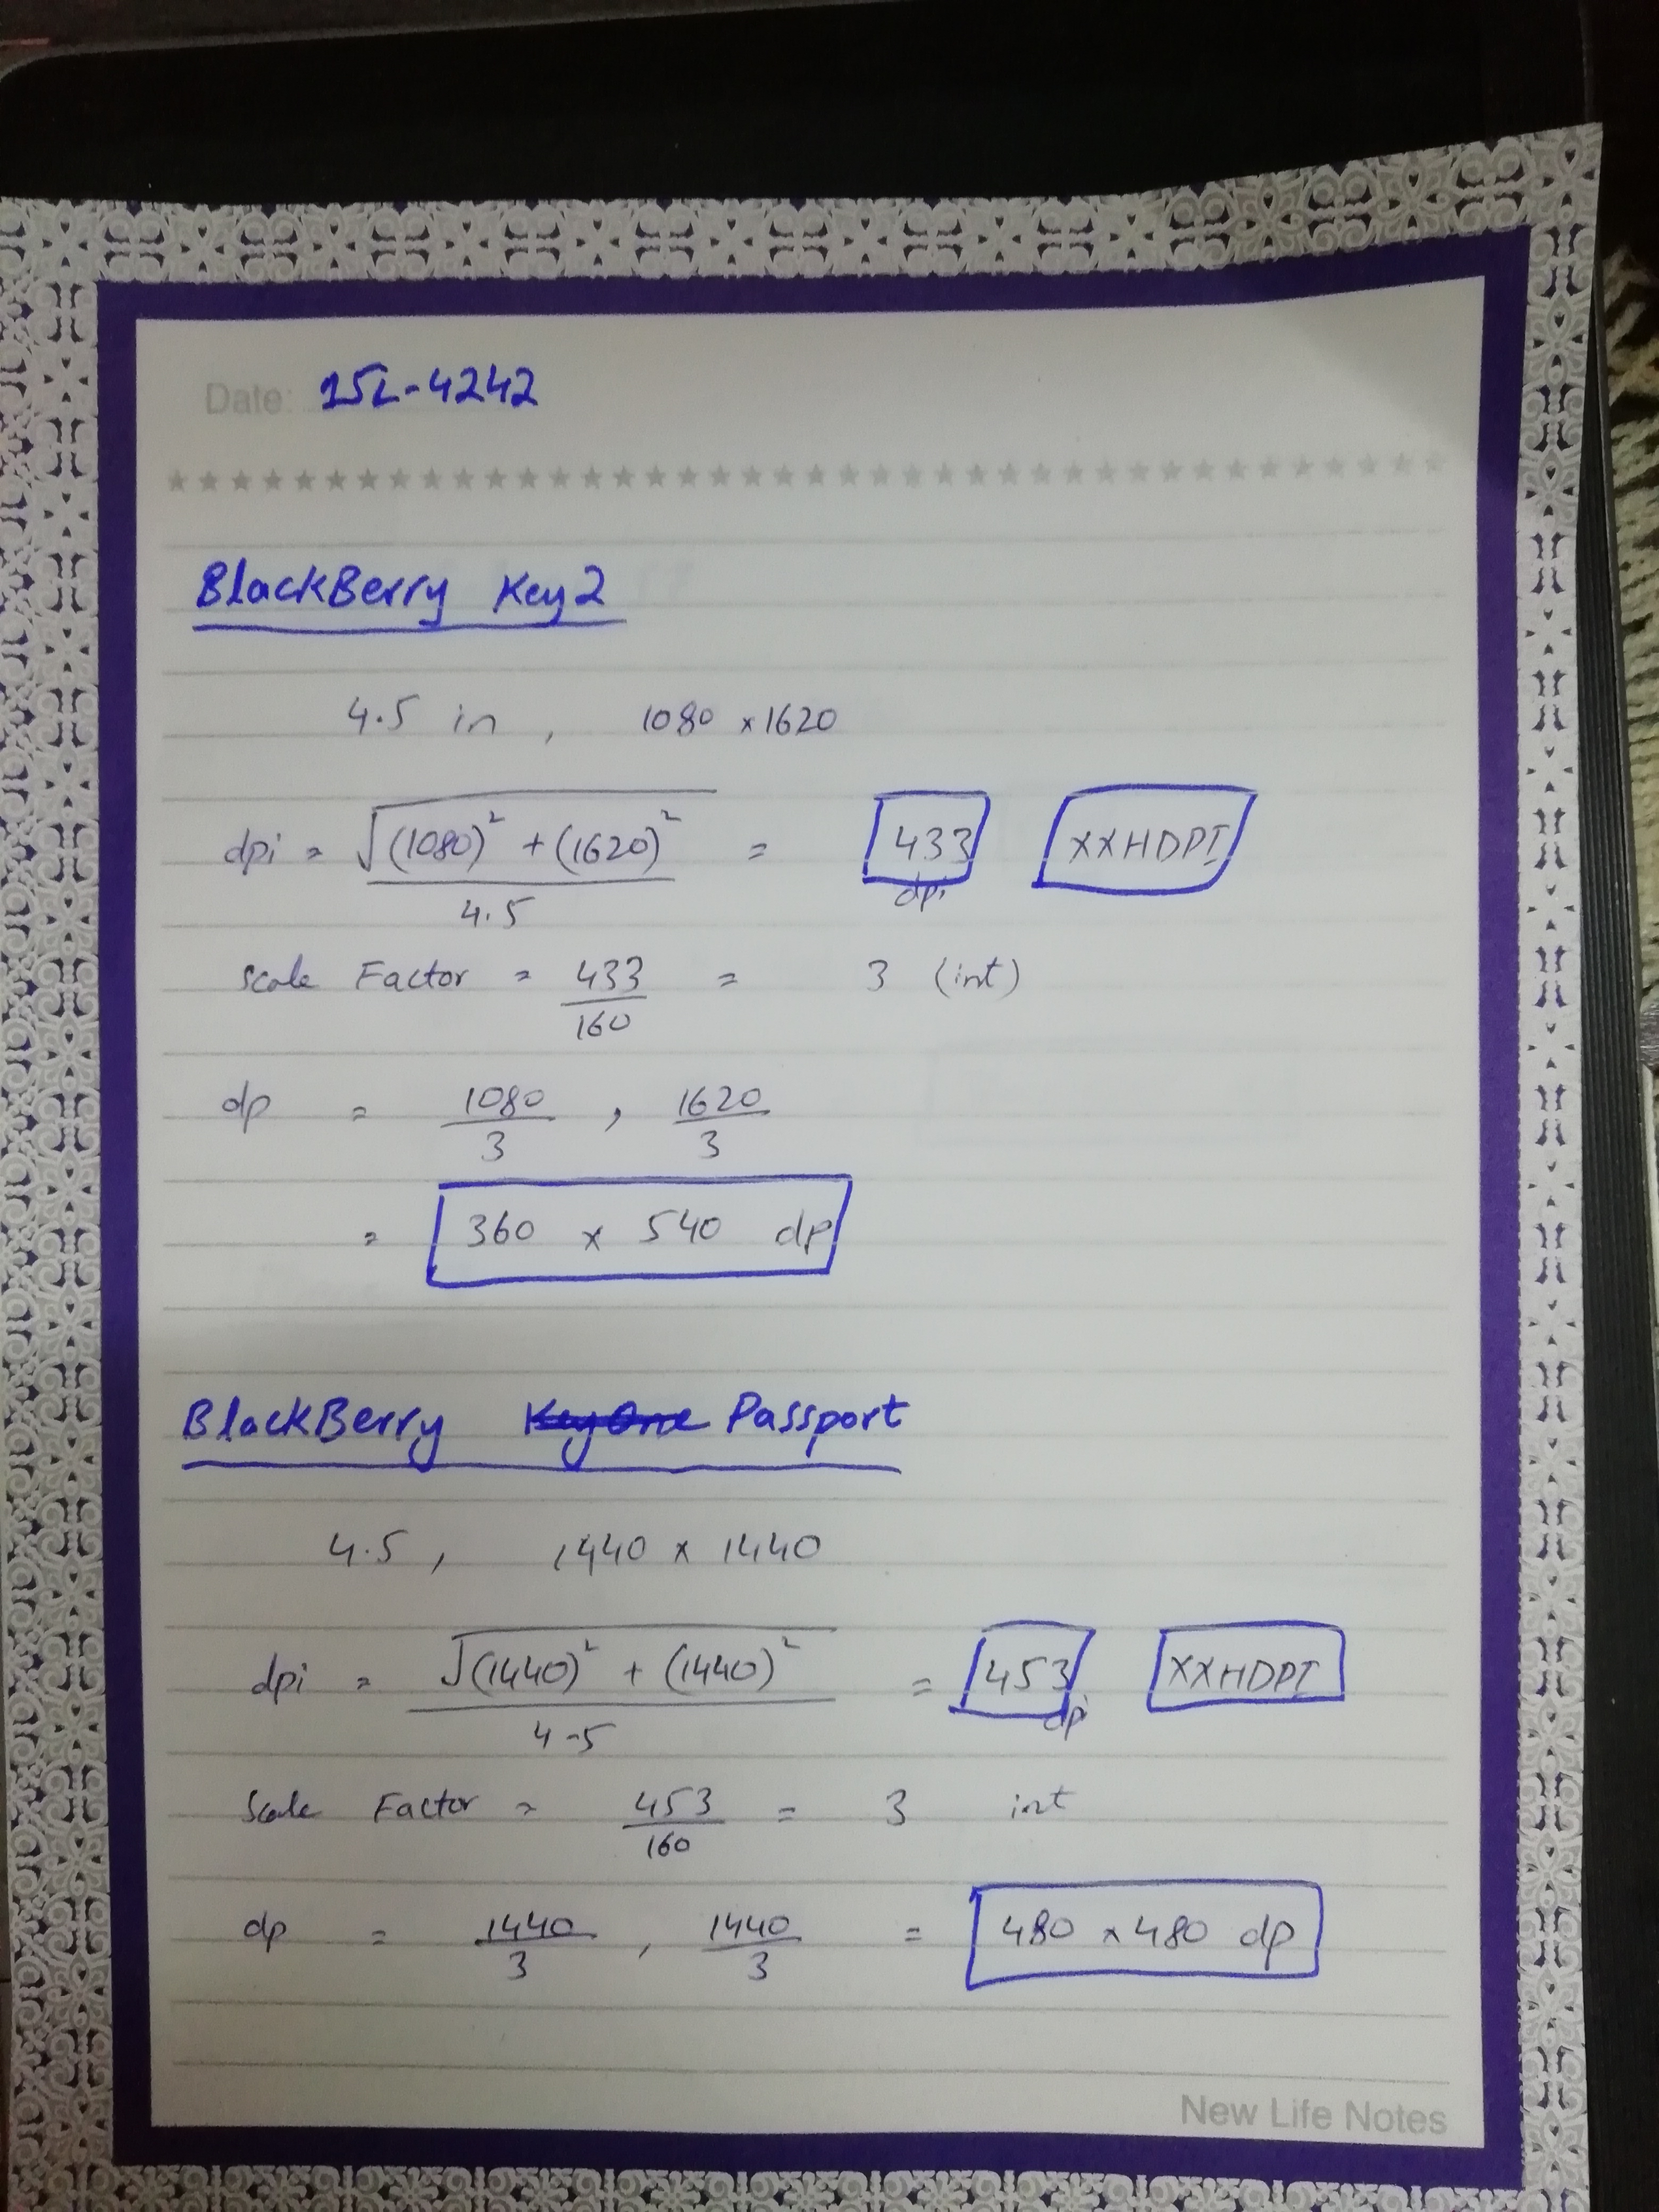 Date: 15L-4242
BlackBerry Key2
4.5 in, 1080 x 1620
dpi = √(1080)² + (1620)² / 4.5 = 433 dpi XXHDPI
Scale Factor = 433 / 160 = 3 (int)
dp = 1080 / 3 , 1620 / 3
= 360 x 540 dp
BlackBerry KeyOne Passport
4.5, 1440 x 1440
dpi = √(1440)² + (1440)² / 4.5 = 453 dpi XXHDPI
Scale Factor = 453 / 160 = 3 int
dp = 1440 / 3 , 1440 / 3 = 480 x 480 dp
New Life Notes